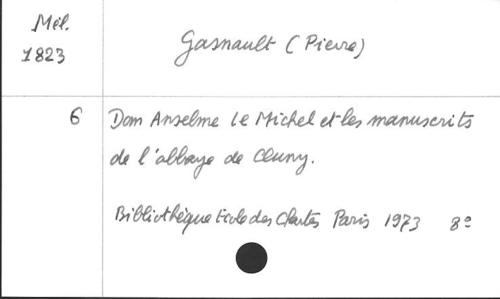 Mél.
1823
Gasnault (Pierre)
6 Dom Anselme Le Michel et les manuscrits
de l'abbaye de Cluny.
Bibliothèque Ecole des Chartes Paris 1973 8º